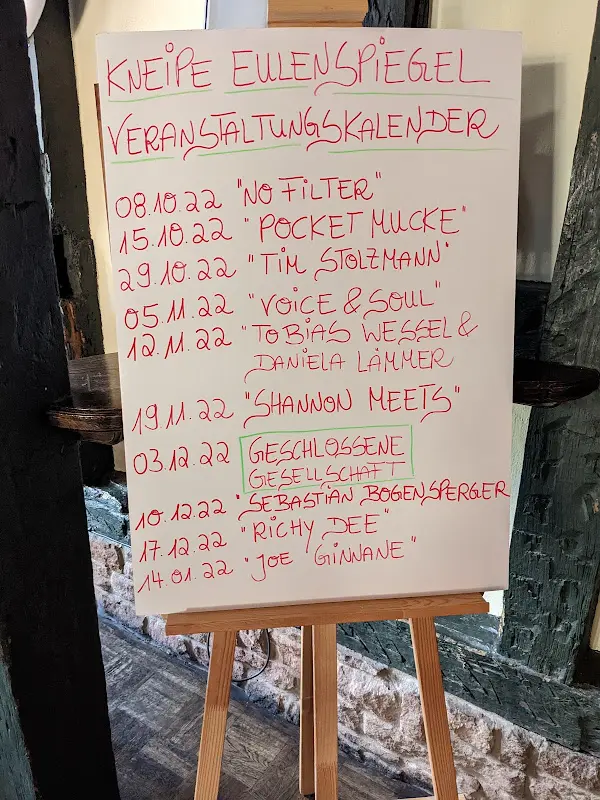 KNEIPE EULENSPIEGEL
VERANSTALTUNGSKALENDER
08.10.22 "NO FILTER"
15.10.22 "POCKET MUCKE"
29.10.22 "TIM STOLZMANN"
05.11.22 "VOICE & SOUL"
12.11.22 "TOBIAS WESSEL &
DANIELA LÄMMER
19.11.22 "SHANNON MEETS"
03.12.22 GESCHLOSSENE
GESELLSCHAFT
10.12.22 "SEBASTIAN BOGENSPERGER
17.12.22 "RICHY DEE"
14.01.22 "JOE GINNANE"